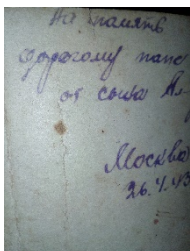 На память
дорогому папе
от сына
Москва
26.4.43